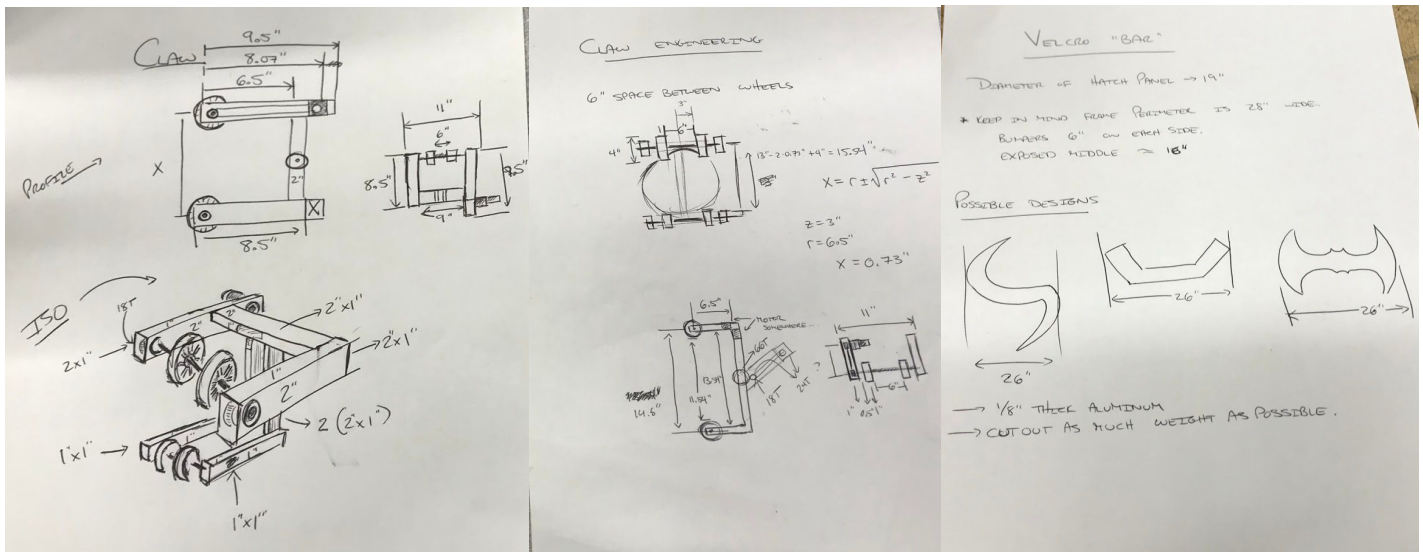 CLAW
9.5"
8.07"
6.5"
PROFILE
X
2"
8.5"
11"
6"
8.5"
9"
ISO
18T
2x1"
1"
2"
2"
2"x1"
2"x1"
1"
2"
2 (2"x1")
1"x1"
1"
1"
1"x1"
CLAW ENGINEERING
6" SPACE BETWEEN WHEELS
3"
6"
4"
13"-2·0.73"+4" = 15.54"
X = r ± √r² - z²
z = 3"
r = 6.5"
X = 0.73"
6.5"
MOTOR
SOMEWHERE
60T
18T
24T
14.6"
11.54"
13.54"
?
11"
6"
1" 0.5" 1"
VELCRO "BAR"
DIAMETER OF HATCH PANEL → 19"
* KEEP IN MIND FRAME PERIMETER IS 28" WIDE.
BUMPERS 6" ON EACH SIDE.
EXPOSED MIDDLE ≈ 16"
POSSIBLE DESIGNS
26"
26"
26"
→ 1/8" THICK ALUMINUM
→ CUT OUT AS MUCH WEIGHT AS POSSIBLE.